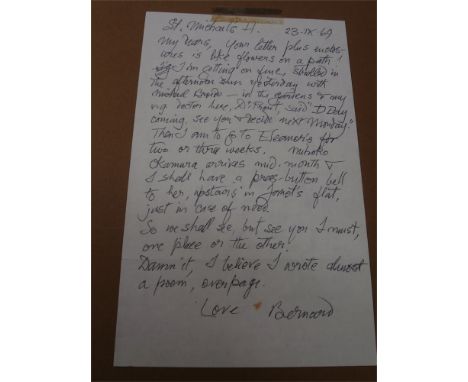 St. Michaels H. 23-IX-67
My Dears, Your letter plus enclos-
ures is like flowers on a path!
I'm getting on fine, strolled in
the afternoon sun yesterday with
Michael — in the gardens & my
doctor here, said "D Day
coming, see you & decide next Monday."
Then I am to go to Eleanor's for
two or three weeks. Mihoko
Okamura arrives mid-month &
I shall have a press-button bell
to her, upstairs in Janet's flat,
just in case of need.
So we shall see, but see you I must,
one place or the other.
Damn it, I believe I wrote almost
a poem, overpage.
Love Bernard